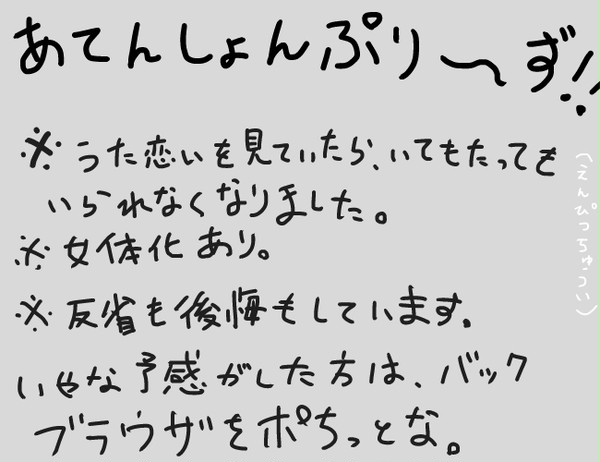 あてんしょんぷり〜ず!!
※うた恋いを見ていたら、いてもたっても
いられなくなりました。
※女体化あり。
※反省も後悔もしています。
いやな予感がした方は、バック
ブラウザをポちっとな。
(えんぴつちゅうい)